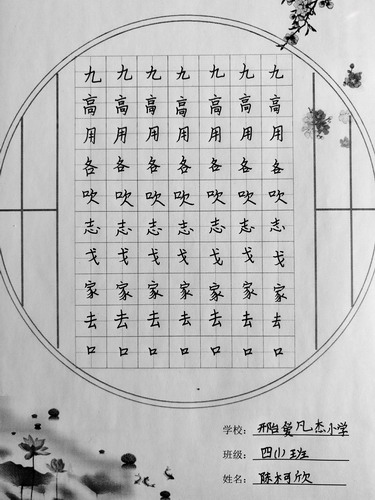 九九九九九九九
高高高高高高高
用用用用用用用
各各各各各各各
吹吹吹吹吹吹吹
志志志志志志志
戈戈戈戈戈戈戈
家家家家家家家
去去去去去去去
口口口口口口口
学校: 凡杰小学
班级: 四(1)班
姓名: 陈柯欣